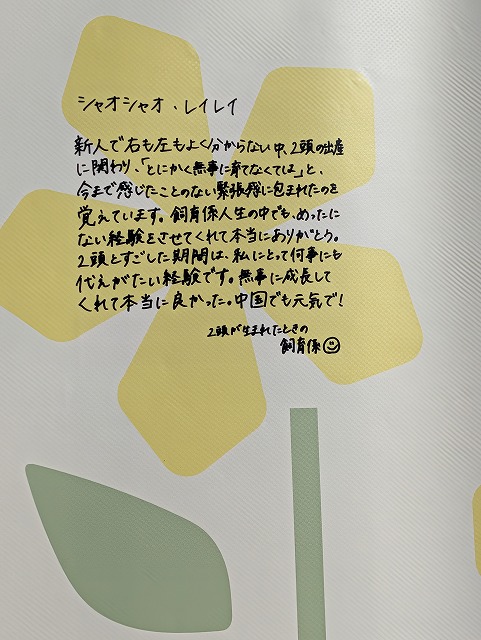 シャオシャオ・レイレイ
新人で右も左もよく分からない中、2頭の出産
に関わり、「とにかく無事に育てなくては」と、
今まで感じたことのない緊張感に包まれたのを
覚えています。飼育係人生の中でも、めったに
ない経験をさせてくれて本当にありがとう。
2頭とすごした期間は、私にとって何事にも
代えがたい経験です。無事に成長して
くれて本当に良かった。中国でも元気で!
2頭が生まれたときの
飼育係☺